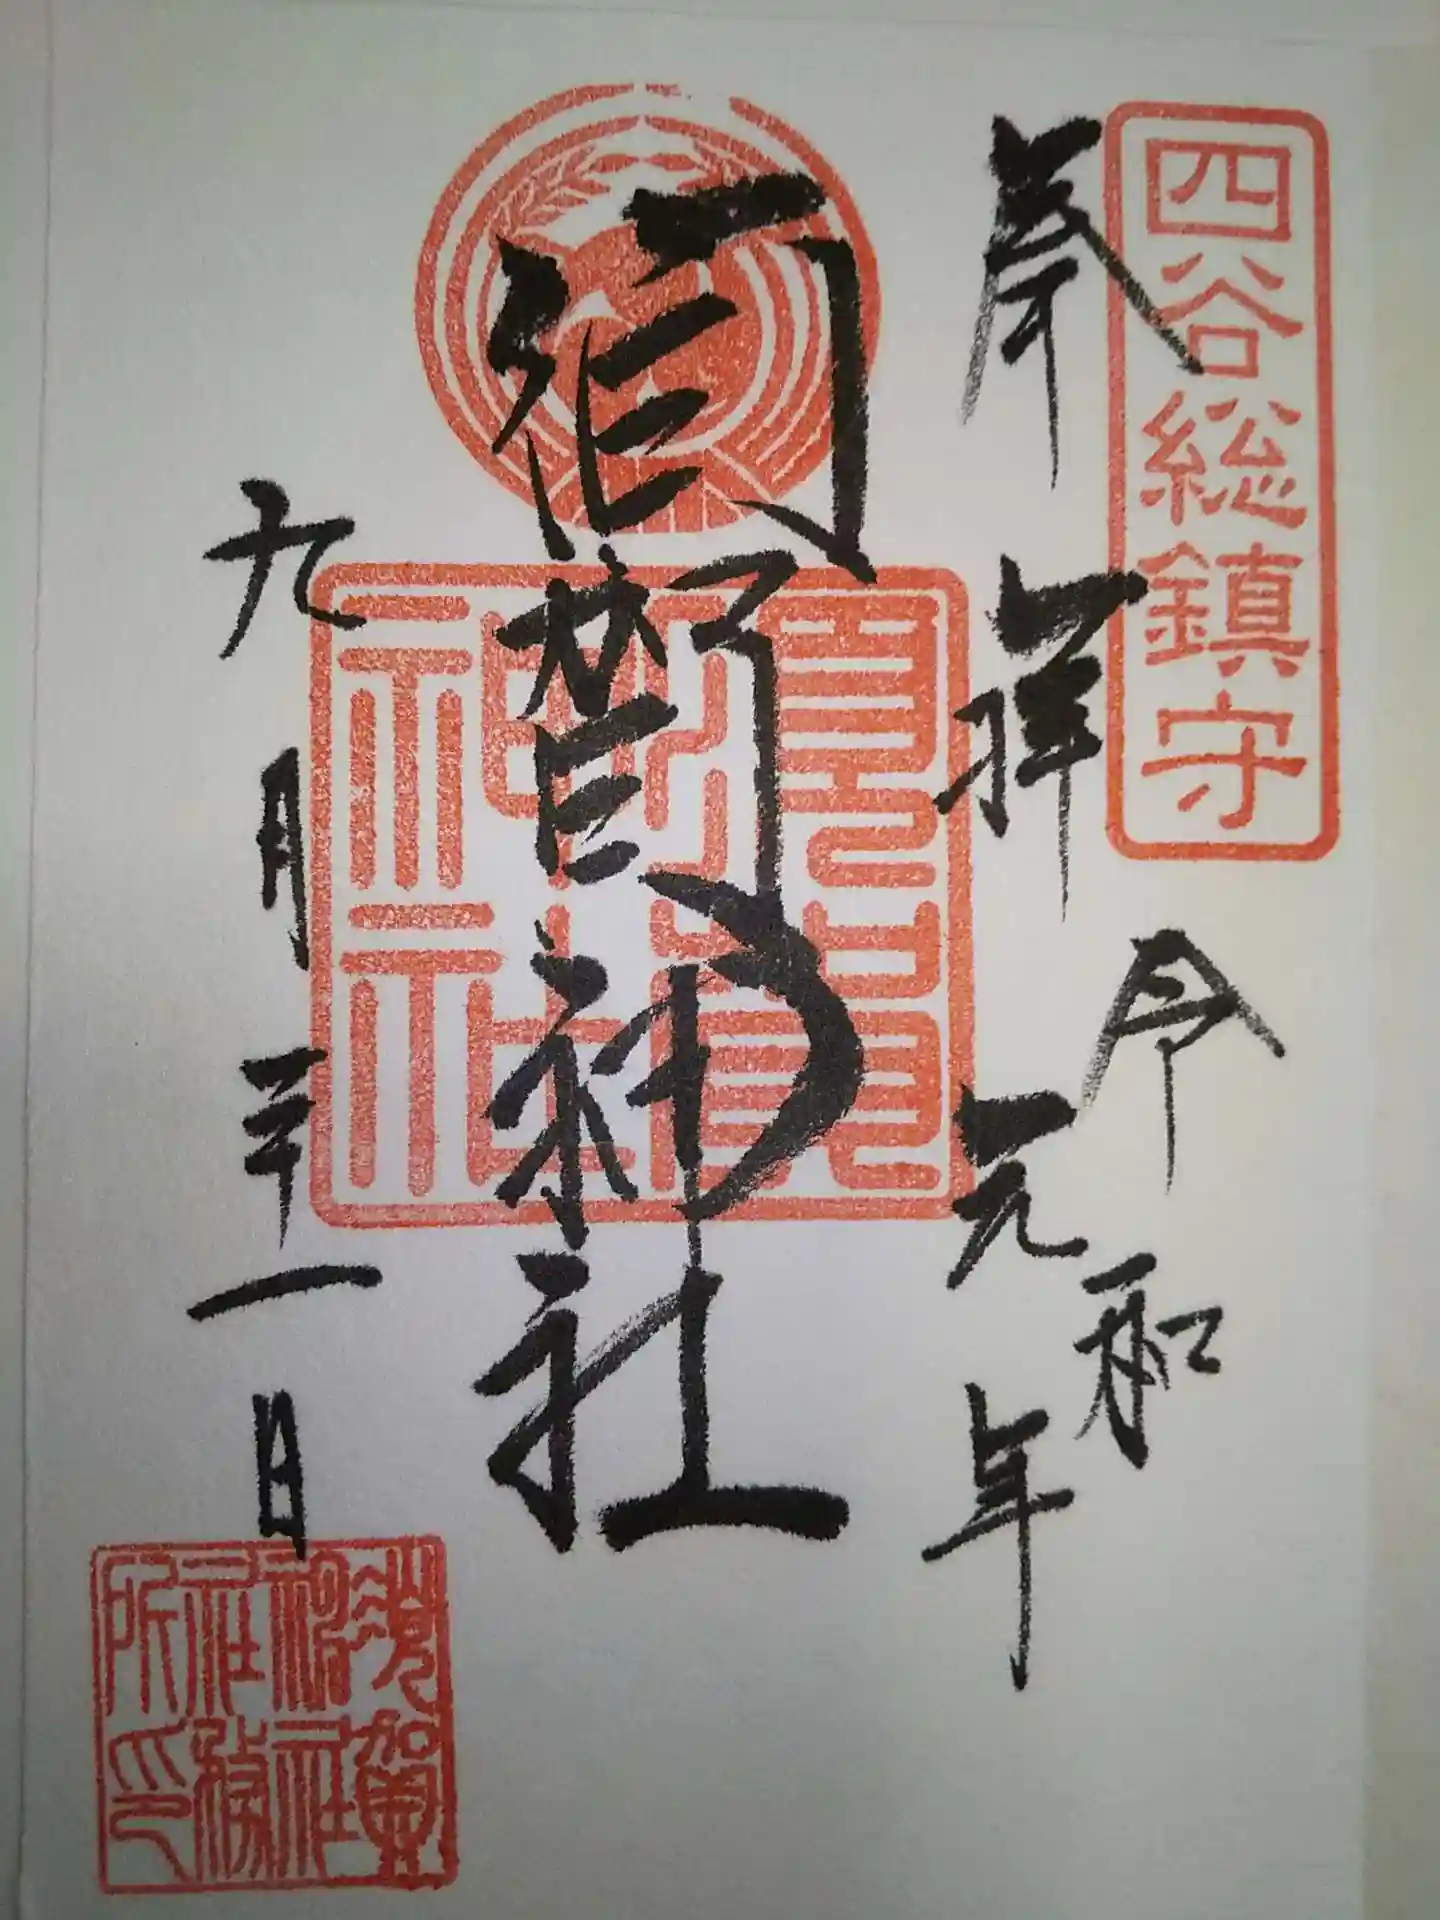 四谷総鎮守
奉拝
令和
元年
須賀神社
九月二十一日
須賀
神社
須賀
神社
社務
所印